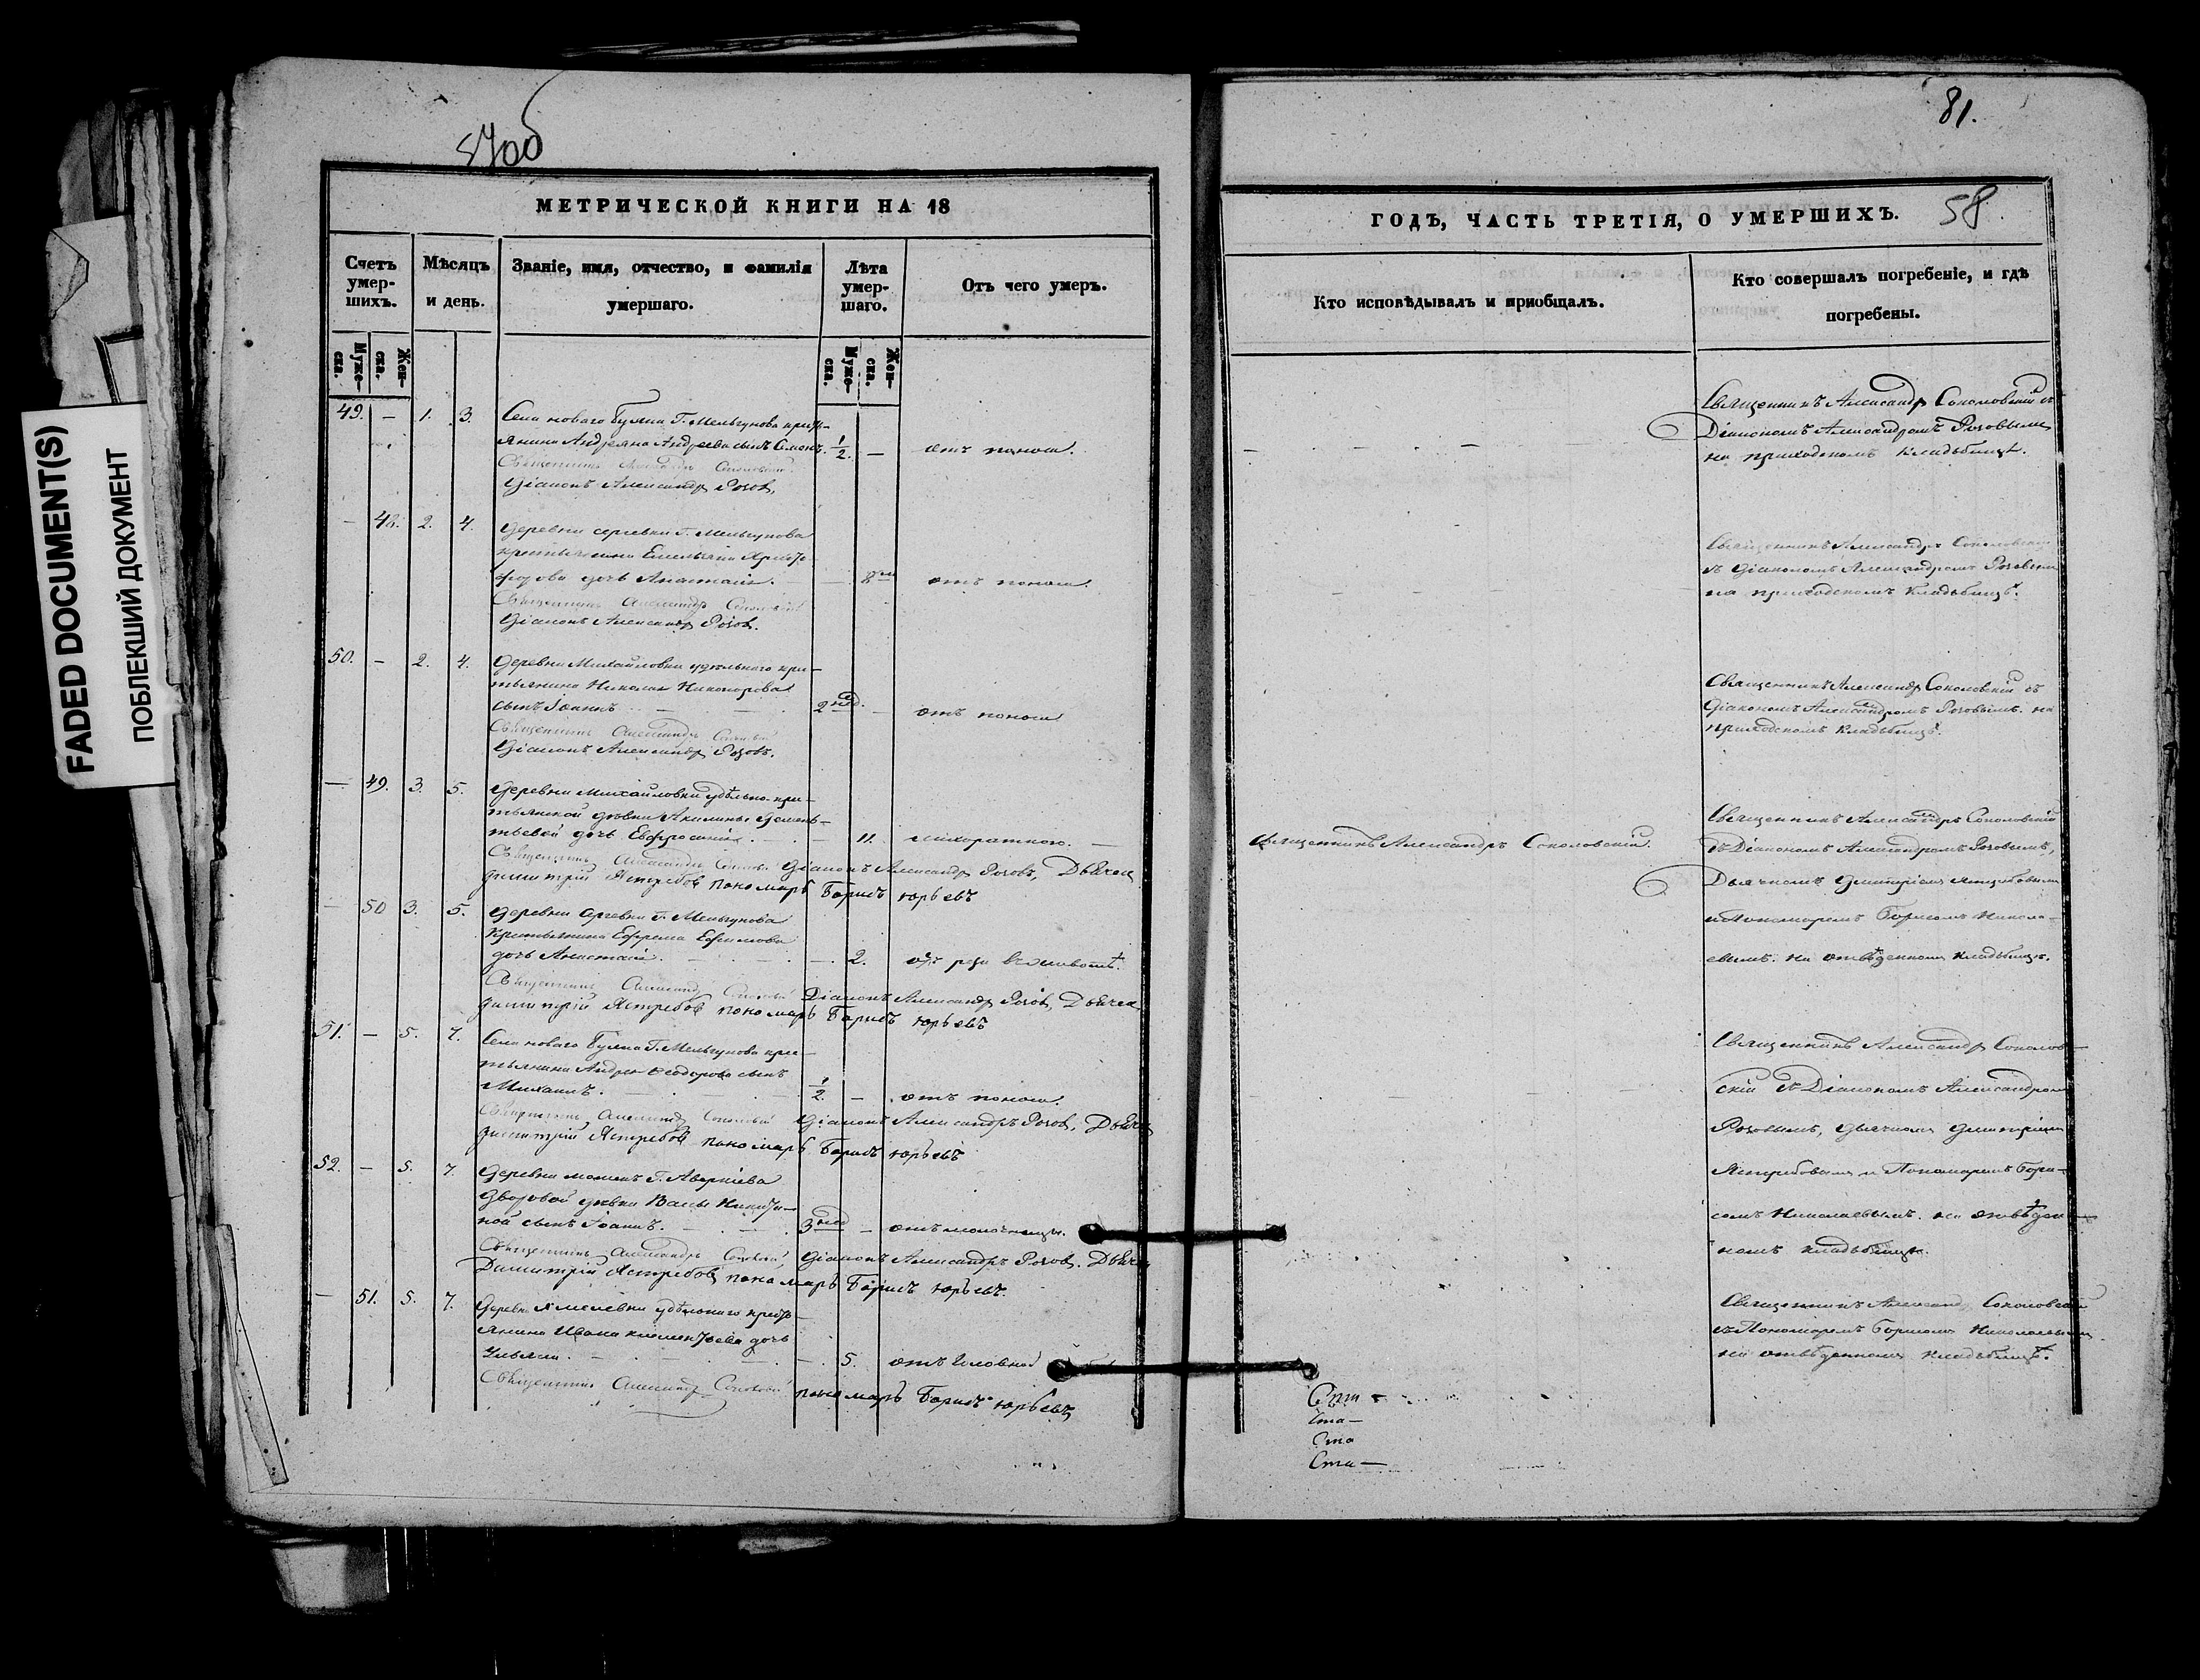 FADED DOCUMENT(S)
ПОБЛЕКШИЙ ДОКУМЕНТ
57об
МЕТРИЧЕСКОЙ КНИГИ НА 18
Счетъ умершихъ.
Мужеска.
Женска.
Мѣсяцъ и день.
Званіе, имя, отчество, и фамилія
умершаго.
Лѣта умершаго.
Мужеска.
Женска.
Отъ чего умеръ.
49. — 1. 3. Села новаго Буяна Г. Мельгунова кресть-
янина Андреяна Андреева сынъ Симонъ. 1/2. — отъ поноса.
Священникъ Александръ Соколовскій
Діаконъ Александръ Розов.
— 48. 2. 4. Деревни сергевки Г. Мельгунова
крестьянина Емельяна
дочь Анастасія. — отъ поноса.
Священникъ Александръ Соколовскій
Діаконъ Александръ Розов.
50. — 2. 4. Деревни Михайловки удѣльнаго кре-
стьянина Николая Никонорова
сынъ Іоаннъ — 2 нед. — отъ поноса
Священникъ Александръ Соколовскій
Діаконъ Александръ Розовъ.
— 49. 3. 5. Деревни Михайловки удѣльно. кре-
стьянской дѣвки Акилины Демень-
тьевой дочь Евфросинія. — 11. лихораткою. —
Священникъ Александръ Діаконъ Александръ Розовъ, Дьячек
Димитрій Ястребов пономарь Борисъ юрьевъ
— 50 3. 5. Деревни Сргевки Г. Мельгунова
Крестьянина Ефрема Ефимова
дочь Анастасія. — 2. отъ рези въ животѣ.
Священникъ Александръ Діаконъ Александръ Розов, Дьячек
димитрій Ястребов пономарь Борисъ юрьевъ
51. — 5. 7. Села новаго Буяна Г. Мельгунова кре-
стьянина Андрея Ѳеодорова сынъ
Михаилъ. 1/2. — отъ поноса.
Священникъ Александръ Діаконъ Александръ Розов, Дьяче
димитрій Ястребов пономарь Борисъ юрьевъ
52. — 5. 7. Деревни Г. Аверкіева
Дворовой дѣвки Вассы Никити-
ной сынъ Іоаннъ. 3 нед — отъ молочницы.
Священникъ Александръ Діаконъ Александръ Розов. Дьяче
Димитрій Ястребов пономарь Борисъ юрьевъ.
— 51. 5. 7. Деревни удѣльнаго кресть-
янина Ивана Климентьева дочь
Ульяна. — 5. отъ Головной
Священникъ Александръ пономарь Борисъ юрьевъ
81.
58.
ГОДЪ, ЧАСТЬ ТРЕТІЯ, О УМЕРШИХЪ.
Кто исповѣдывалъ и приобщалъ.
Кто совершалъ погребеніе, и гдѣ
погребены.
Священникъ Александр Соколовскій съ
Діакономъ Александромъ Розовымъ
на приходскомъ кладьбищѣ.
Священникъ Александръ Соколовскій
съ Діакономъ Александромъ Розовым
на приходскомъ кладьбищѣ.
Священникъ Александр Соколовскій съ
Діакономъ Александромъ Розовымъ. на
приходскомъ кладьбищѣ.
Священникъ Александръ Соколовскій.
Священникъ Александръ Соколовскій
съ Діакономъ Александромъ Розовымъ,
Дьячкомъ Димитріемъ Ястребовымъ
и Пономаремъ Борисомъ Никола-
евымъ. на отвѣденномъ кладьбищѣ.
Священникъ Александр Соколов-
скій съ Діакономъ Александром
Розовымъ, дьячкомъ Димитріем
Ястребовымъ и Пономаремъ Бори-
сомъ Николаевымъ. на отвѣден-
номъ кладьбищѣ.
Священникъ Александ Соколовскій
съ Пономаремъ Борисом Николаевым
на отвѣденномъ кладьбищѣ.
Ста —
Ста
Ста —